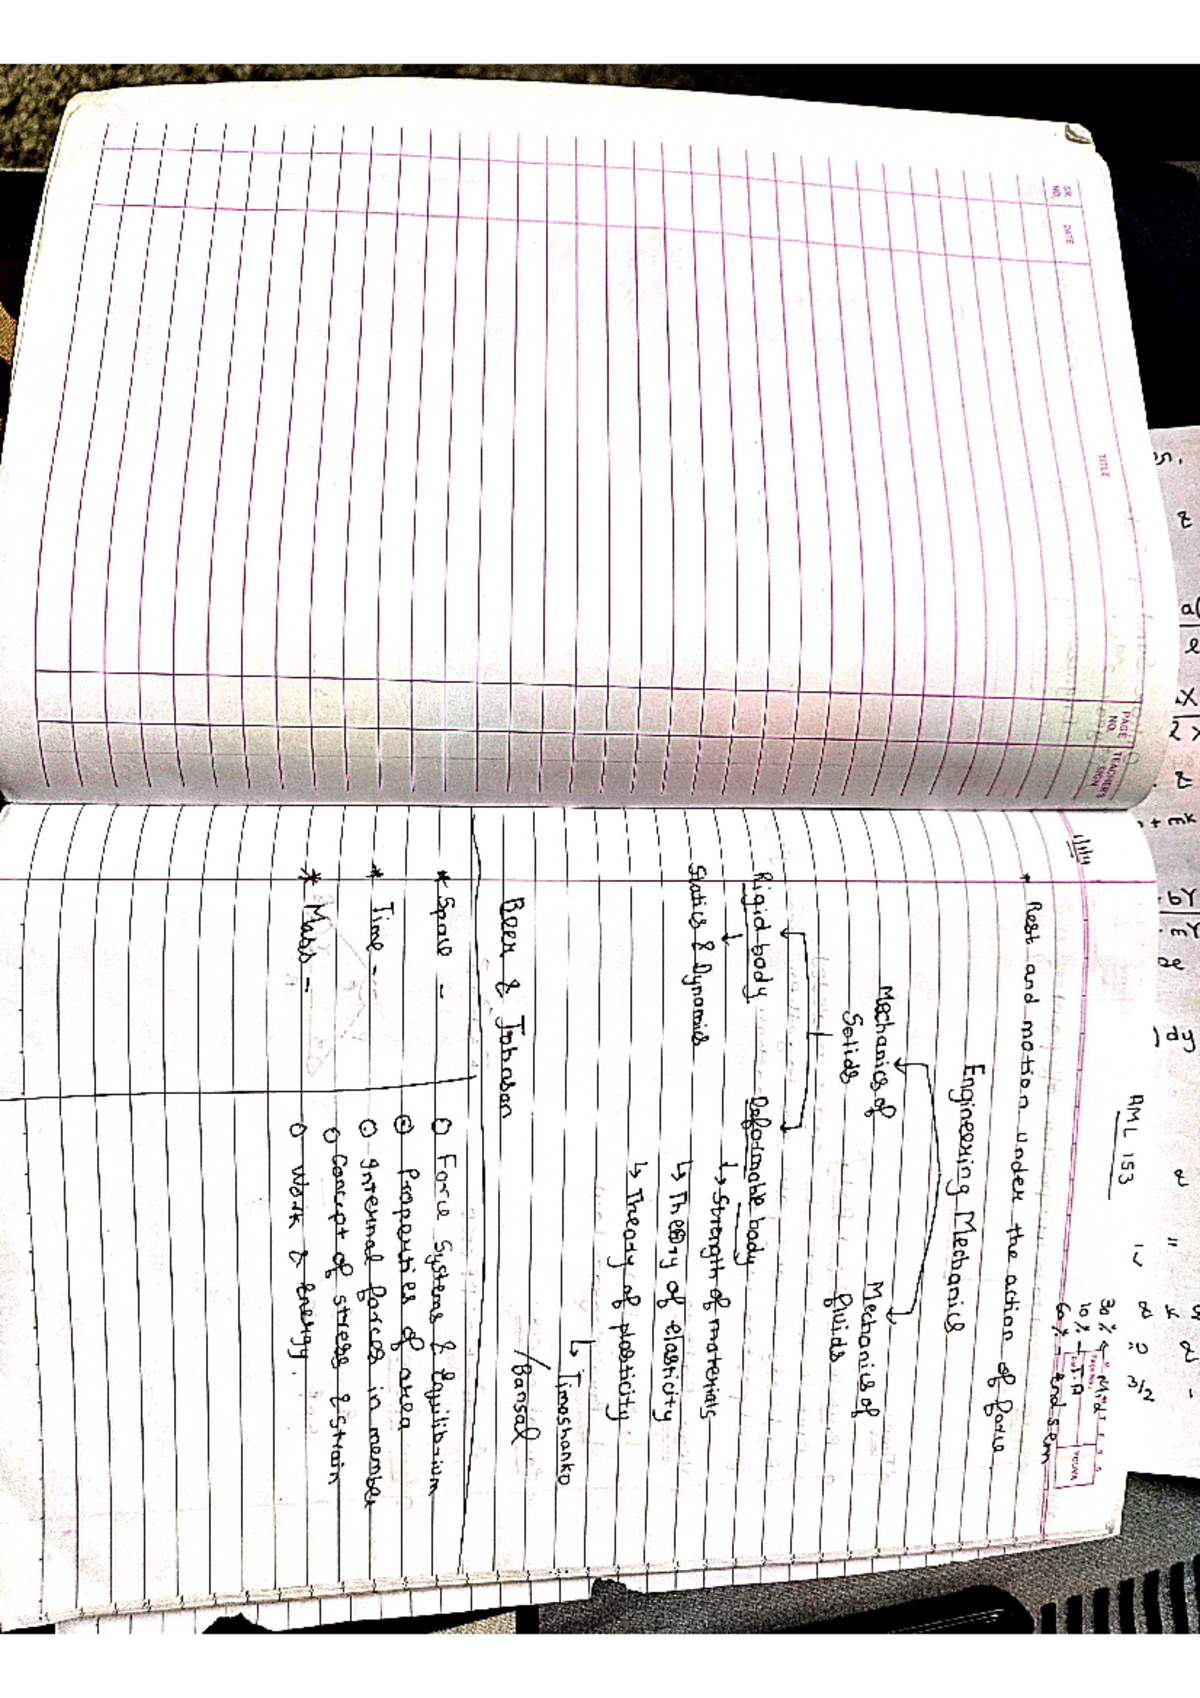 SR. NO.
DATE
TITLE
PAGE NO.
TEACHER'S SIGN
AML 153
30% - Mid
10% - T.A
60% - End sem
YOUVA
* Rest and motion under the action of force
Engineering Mechanics
Mechanics of Solids
Mechanics of fluids
Rigid body
Deformable body
Statics & Dynamics
↳ Strength of materials
↳ Theory of elasticity
↳ Theory of plasticity
↳ Timoshanko
Beer & Johnson / Bansal
* Space -
* Time -
* Mass -
o Force Systems & Equilibrium
o Properties of area
o Internal forces in member
o Concept of stress & strain
o Work & Energy